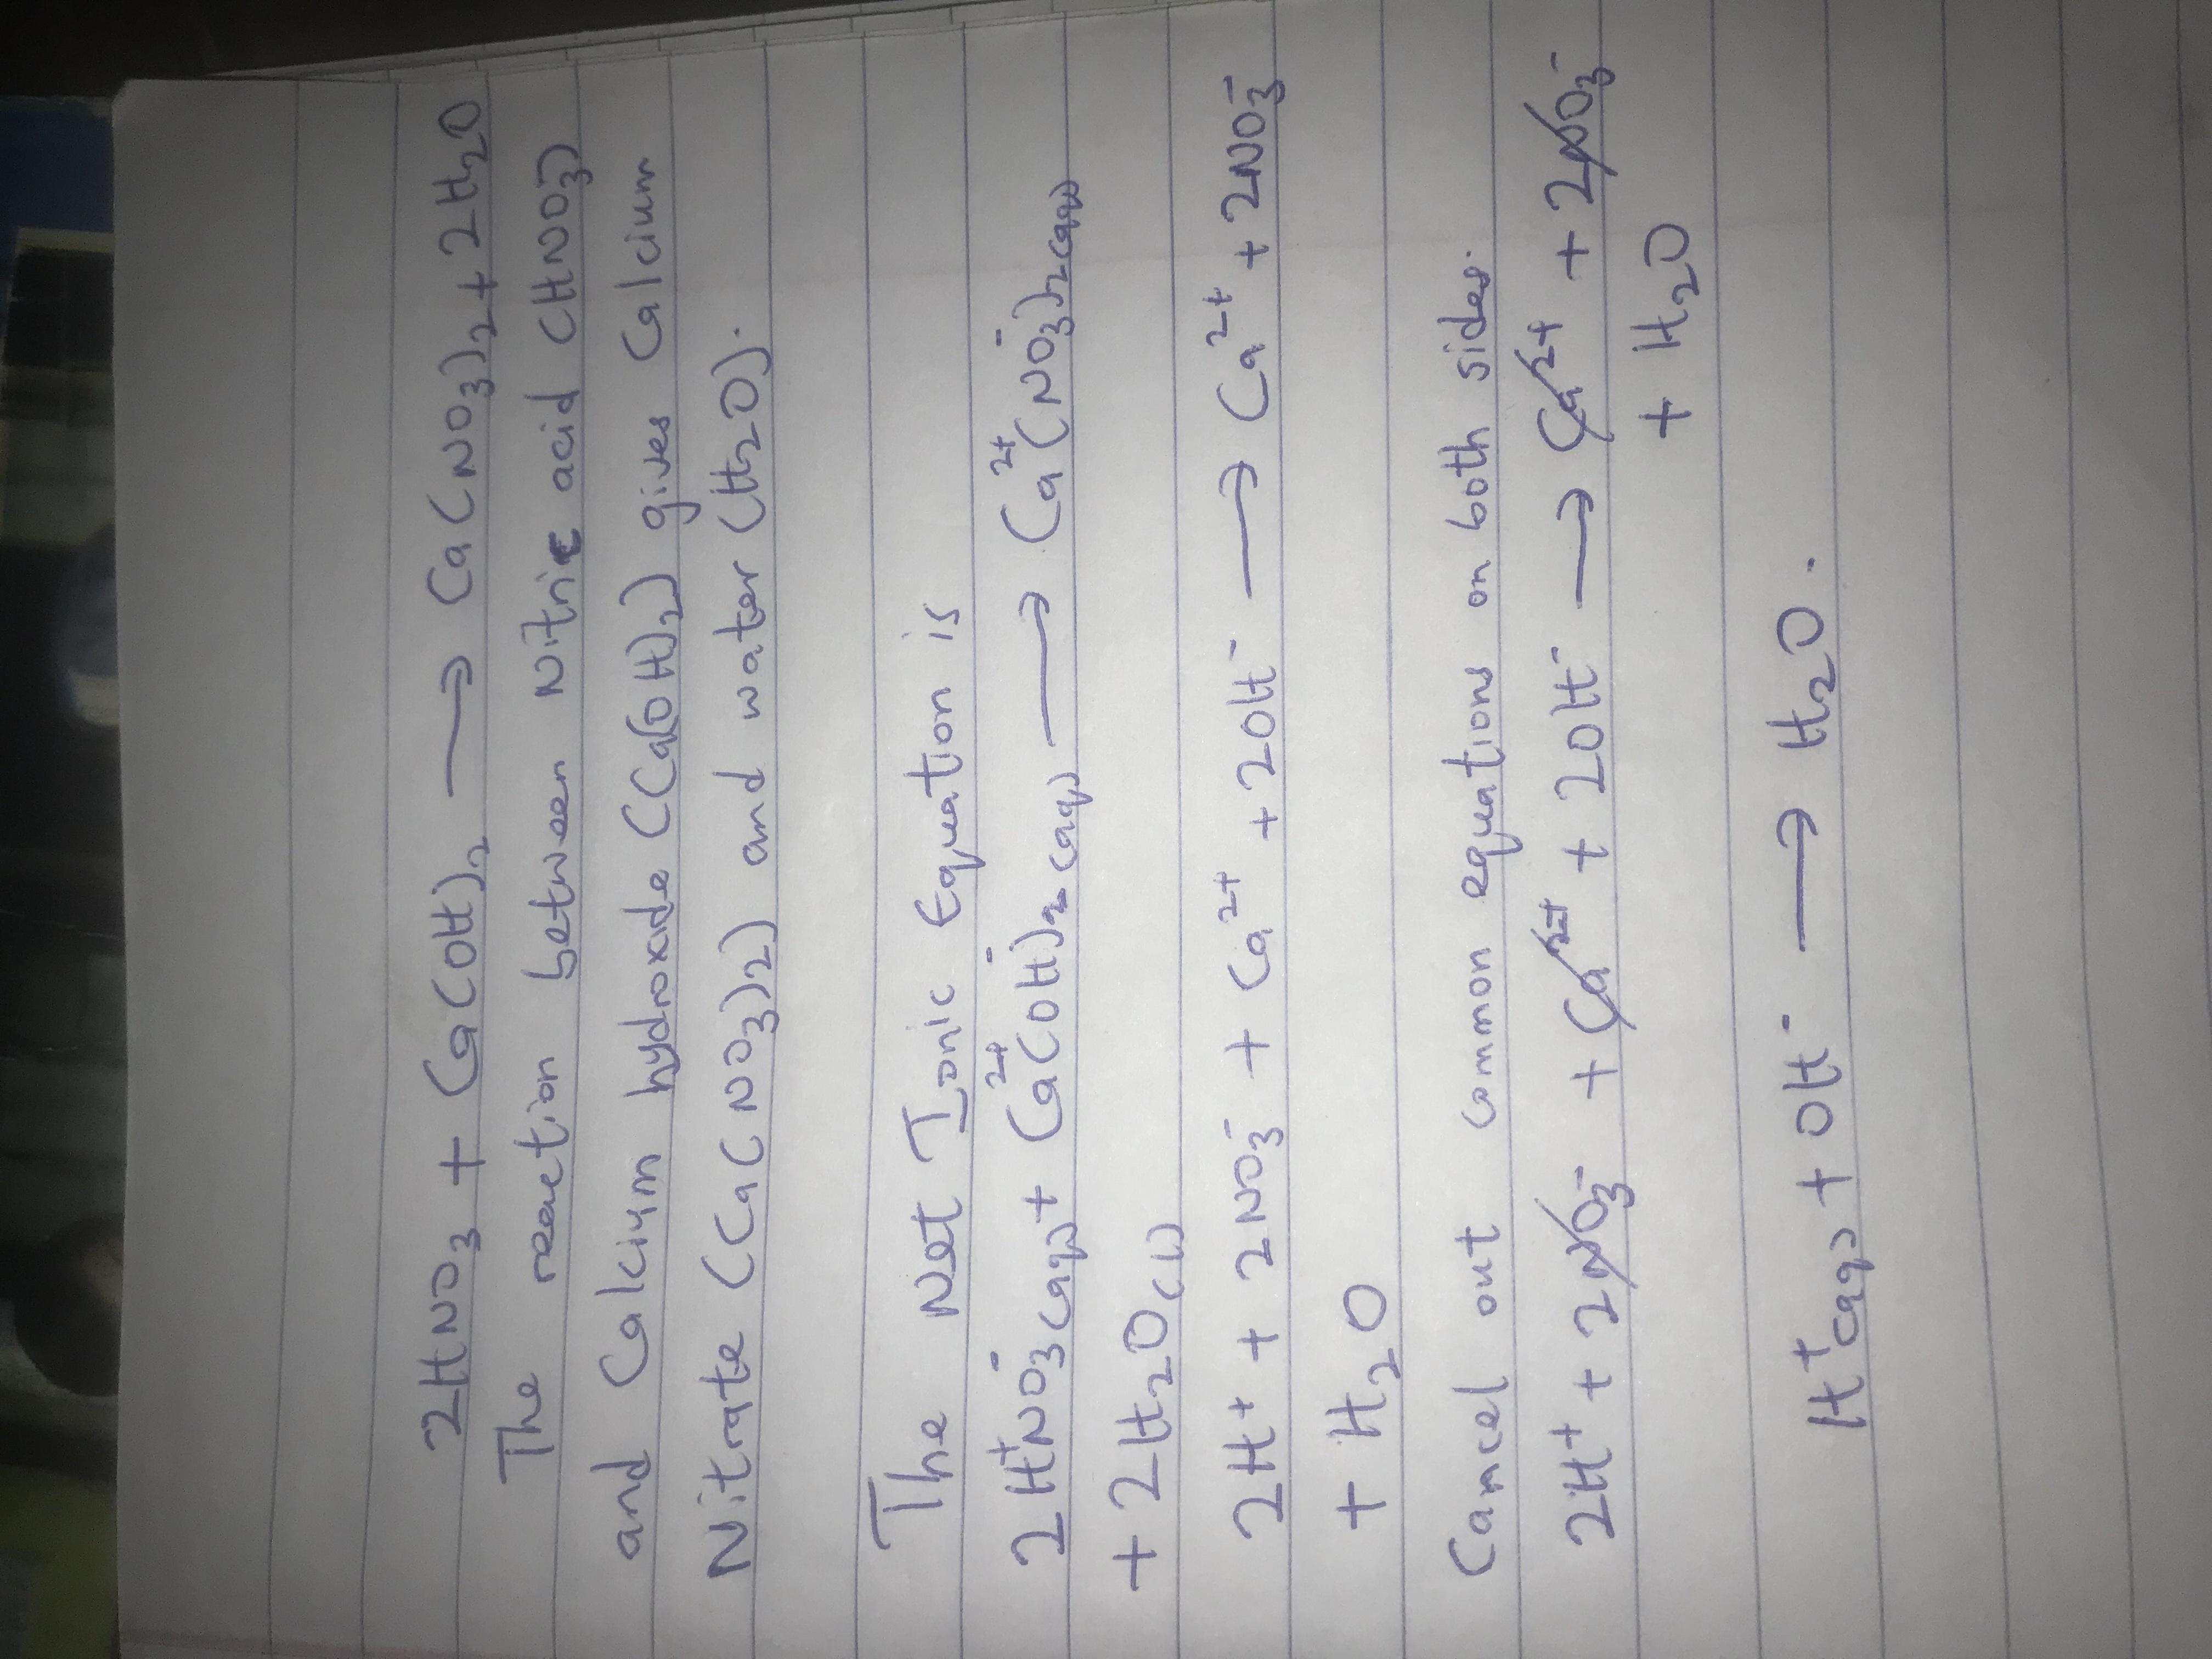 2HNO₃ + Ca(OH)₂ → Ca(NO₃)₂ + 2H₂O
The reaction between Nitric acid (HNO₃)
and Calcium hydroxide (Ca(OH)₂) gives Calcium
Nitrate (Ca(NO₃)₂) and water (H₂O).
The Net Ionic Equation is
2H⁺NO₃⁻(aq) + Ca²⁺(OH)⁻₂(aq) → Ca²⁺(NO₃⁻)₂(aq)
+ 2H₂O(l)
2H⁺ + 2NO₃⁻ + Ca²⁺ + 2OH⁻ → Ca²⁺ + 2NO₃⁻
+ H₂O
Cancel out common equations on both sides.
2H⁺ + 2NO₃⁻ + Ca²⁺ + 2OH⁻ → Ca²⁺ + 2NO₃⁻
+ H₂O
H⁺(aq) + OH⁻ → H₂O.